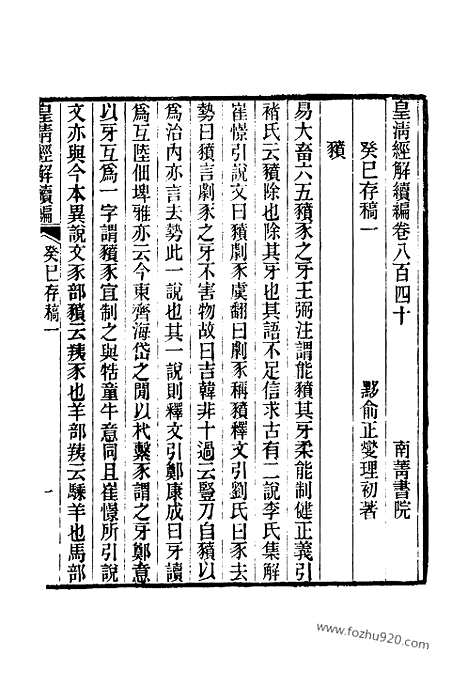 皇淸經解續編卷八百四十
南菁書院
癸巳存稿一
黟俞正燮理初著
豶
易大畜六五豶豕之牙王弼注謂能豶其牙柔能制健正義引
褚氏云豶除也除其牙也其語不足信求古有二說李氏集解
崔憬引說文曰豶劇豕虞翻曰劇豕稱豶釋文引劉氏曰豕去
勢曰豶言劇豕之牙不害物故曰吉韓非十過云豎刀自豶以
爲治內亦言去勢此一說也其一說則釋文引鄭康成曰牙讀
爲互陸佃埤雅亦云今東齊海岱之閒以杙繫豕謂之牙鄭意
以牙互爲一字謂豶豕宜制之與牿童牛意同且崔憬所引說
文亦與今本異說文豕部豶云羠豕也羊部羠云騬羊也馬部
皇淸經解續編
癸巳存稿一
一
www.fozhu920.com